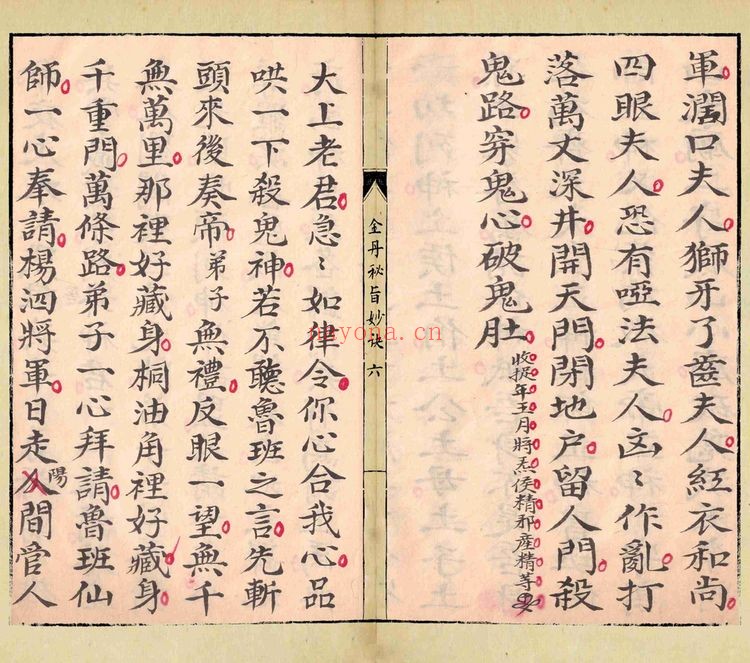 軍潤口夫人獅牙了齒夫人紅衣和尚
四眼夫人恐有啞法夫人凶〻作亂打
落萬丈深井開天門閉地户留人門殺
鬼路穿鬼心破鬼肚收捉年五月將炁侯精邪產精等
金丹秘旨妙诀 六
大上老君急〻如律令你心合我心品
哄一下殺鬼神若不聽魯班之言先斬
頭來後奏帝弟子無禮反眼一望無千
無萬里那裡好藏身桐油角裡好藏身
千重門萬條路弟子一心拜請魯班仙
師一心奉請楊泗將軍日走陽間管人
nayona.cn